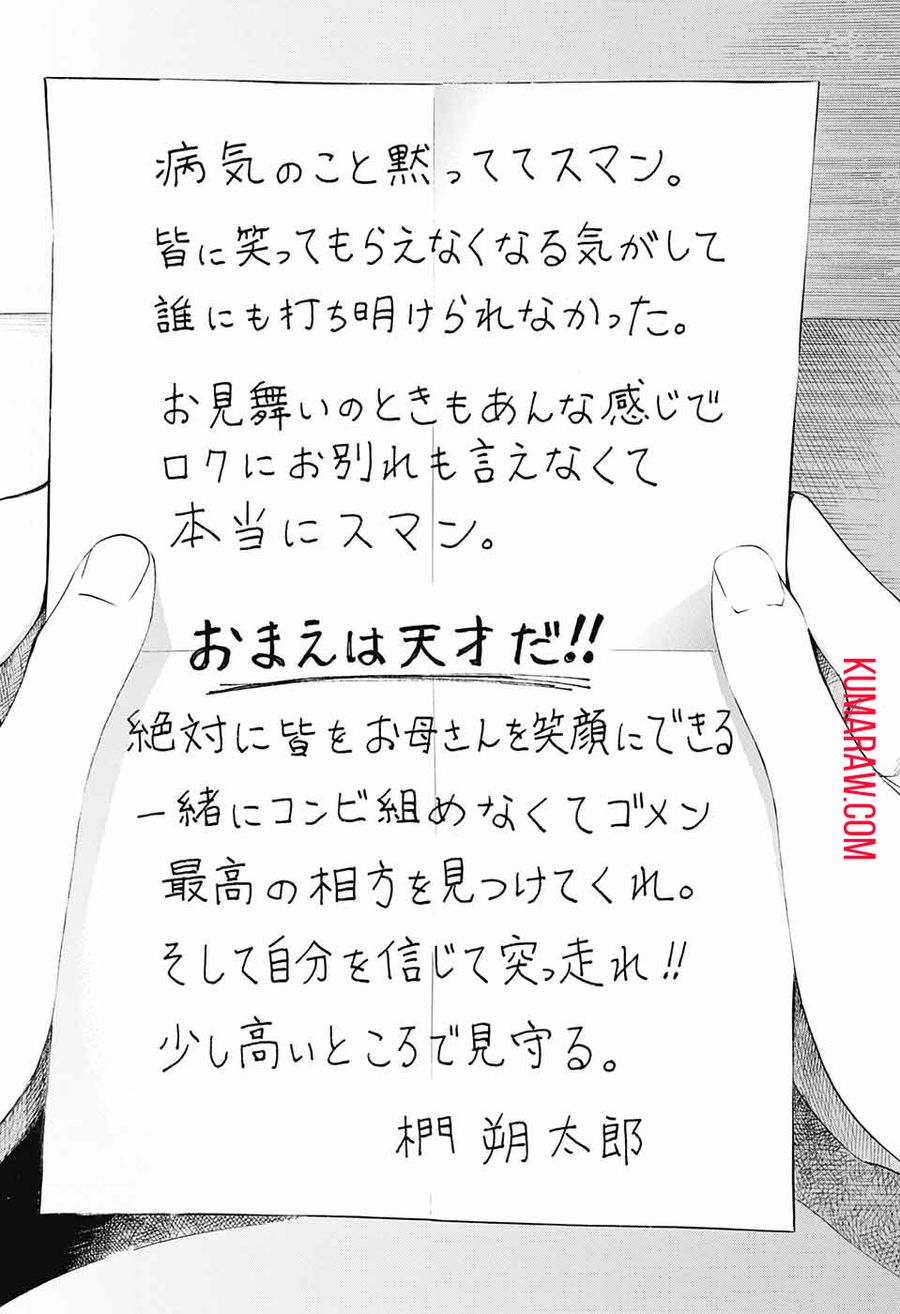 病気のこと黙っててスマン。
皆に笑ってもらえなくなる気がして
誰にも打ち明けられなかった。
お見舞いのときもあんな感じで
ロクにお別れも言えなくて
本当にスマン。
おまえは天才だ!!
絶対に皆をお母さんを笑顔にできる
一緒にコンビ組めなくてゴメン
最高の相方を見つけてくれ。
そして自分を信じて突っ走れ!!
少し高いところで見守る。
椚 朔太郎
KUMARAW.COM